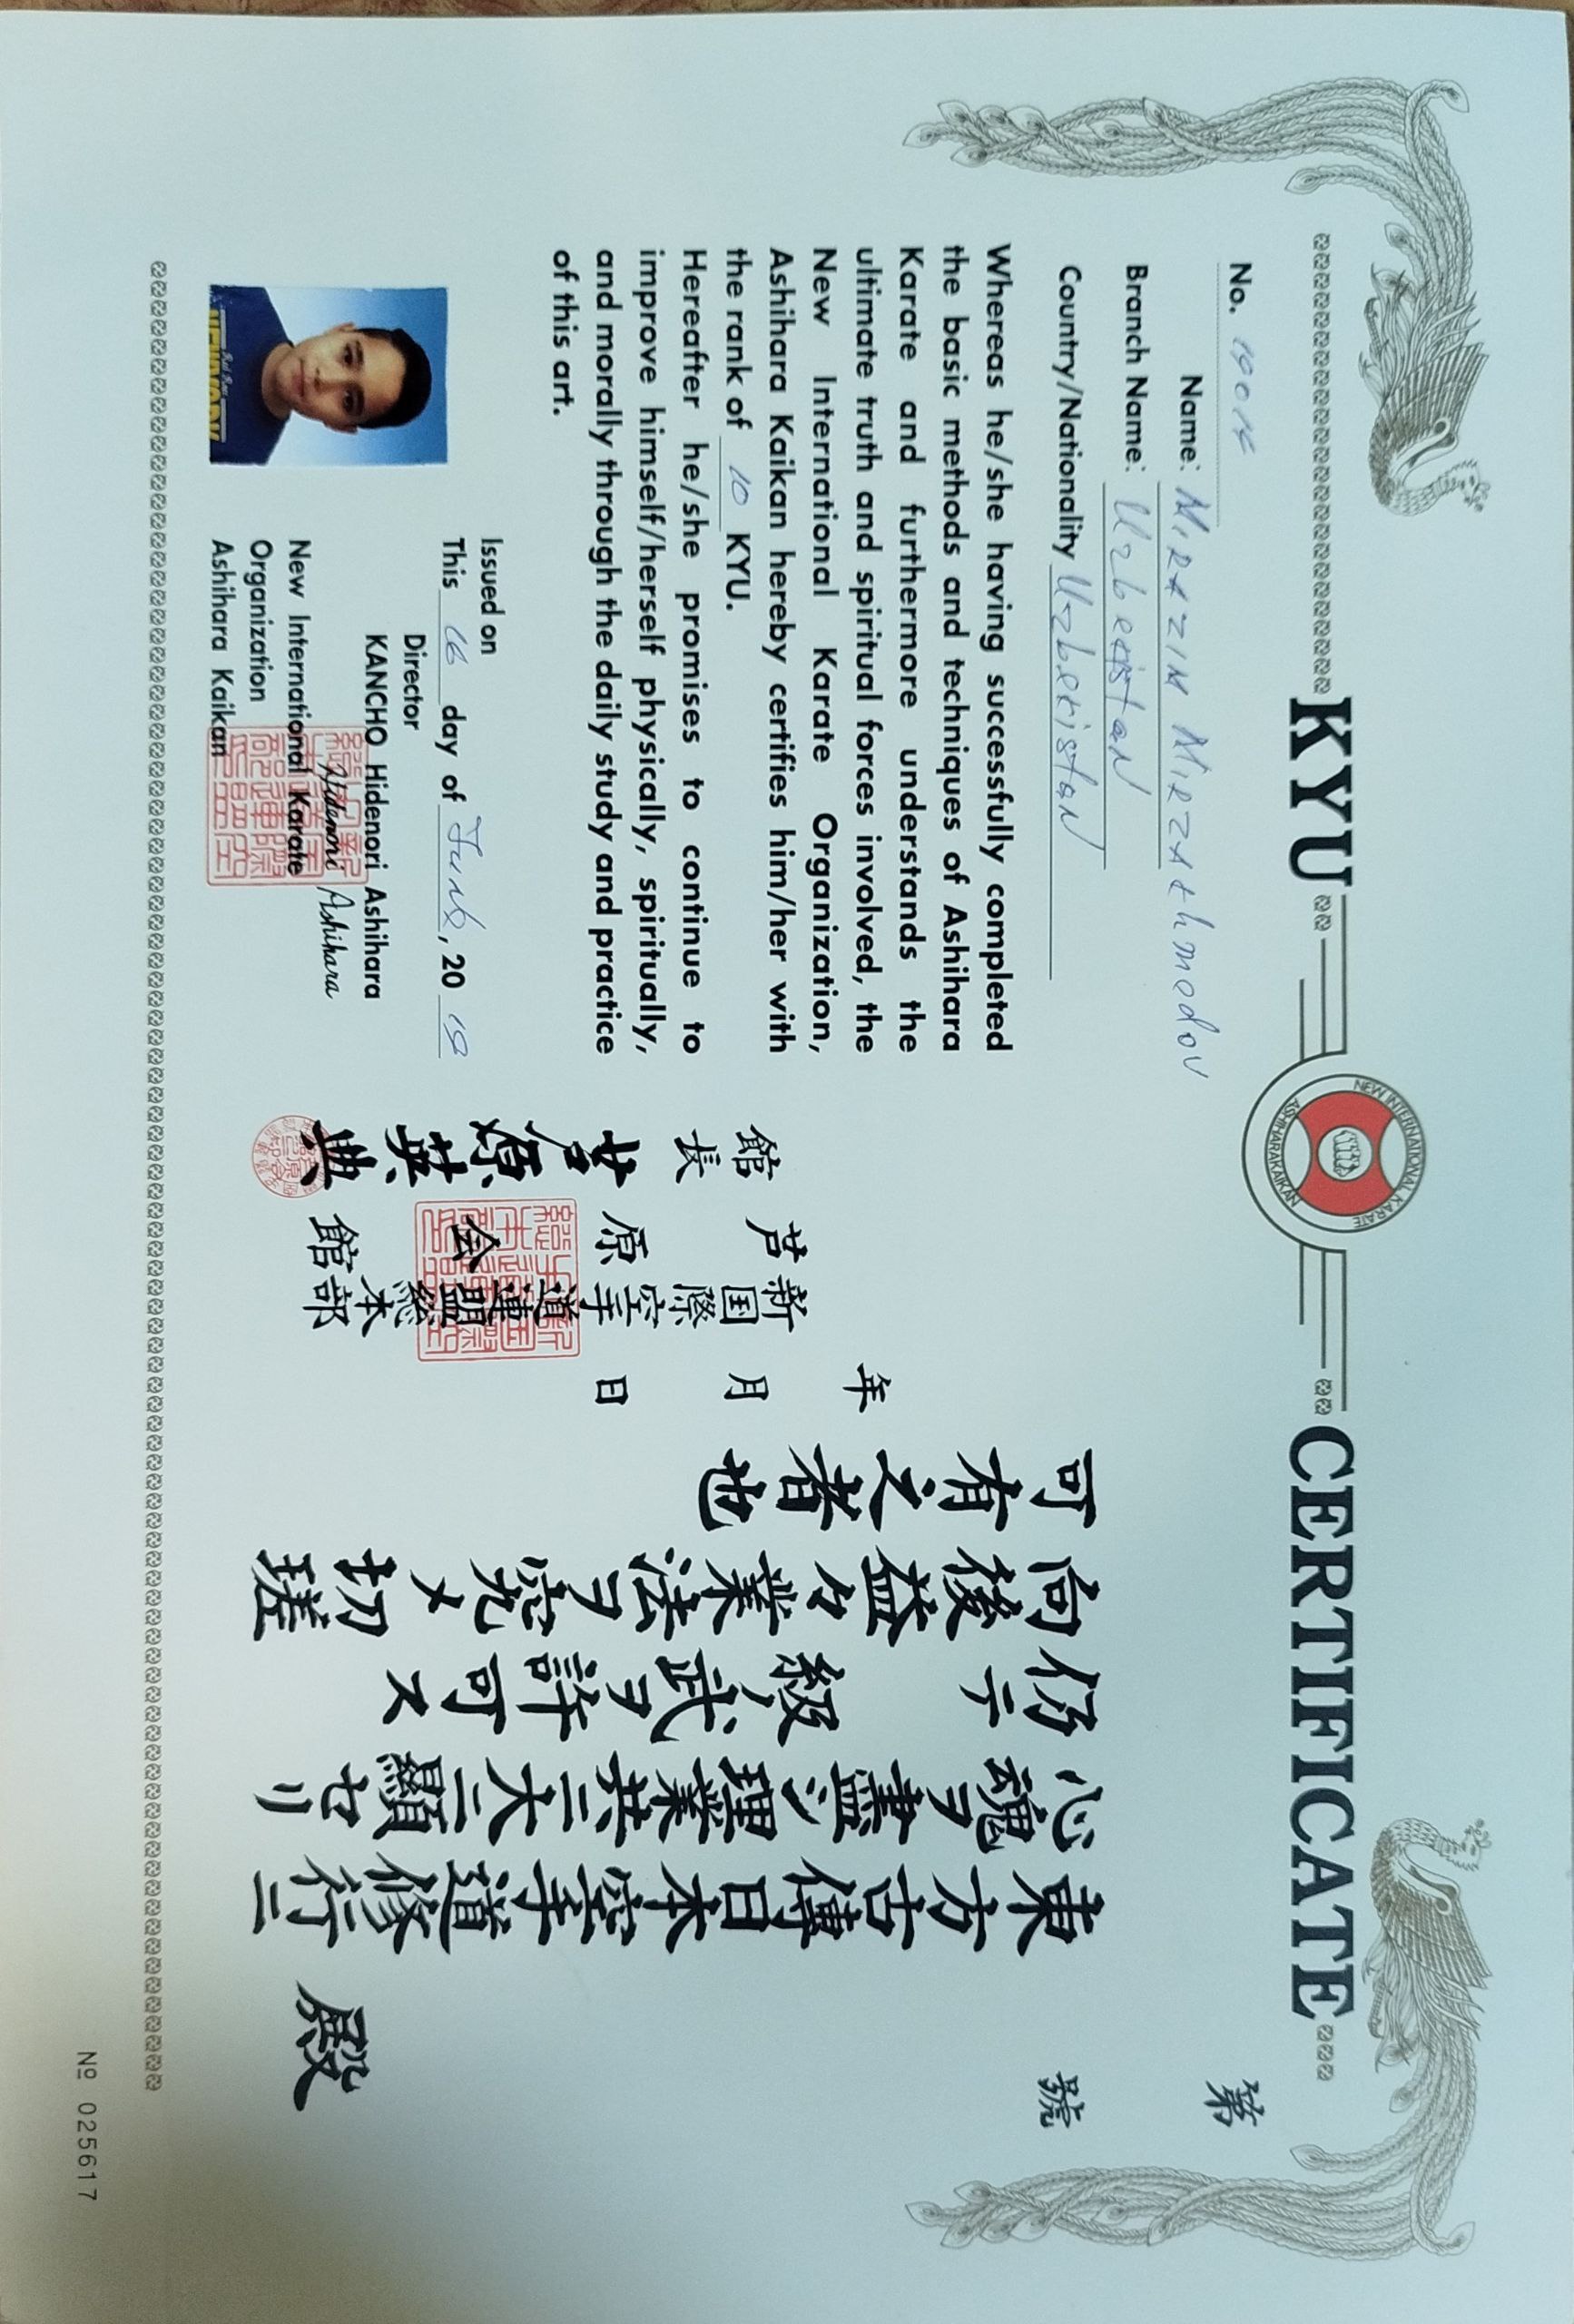 KYU CERTIFICATE
NEW INTERNATIONAL KARATE
ASHIHARAKAIKAN
No. 19014
Name: MIRAZIM MIRZAKhmedov
Branch Name: Uzbekistan
Country/Nationality Uzbekistan
Whereas he/she having successfully completed
the basic methods and techniques of Ashihara
Karate and furthermore understands the
ultimate truth and spiritual forces involved, the
New International Karate Organization,
Ashihara Kaikan hereby certifies him/her with
the rank of 10 KYU.
Hereafter he/she promises to continue to
improve himself/herself physically, spiritually,
and morally through the daily study and practice
of this art.
Issued on
This 16 day of June, 20 19
Director
KANCHO Hidenori Ashihara
Hidenori Ashihara
New International Karate
Organization
Ashihara Kaikan
第 號
殿
東方古傳日本空手道修行ニ
心魂ヲ盡シ理業共ニ大ニ顯セリ
仍テ 級ノ武ヲ許可ス
向後益々業法ヲ究メ切瑳
可有之者也
年 月 日
新国際空手道連盟総本部
芦原会館
館長 芦原英典
№ 025617